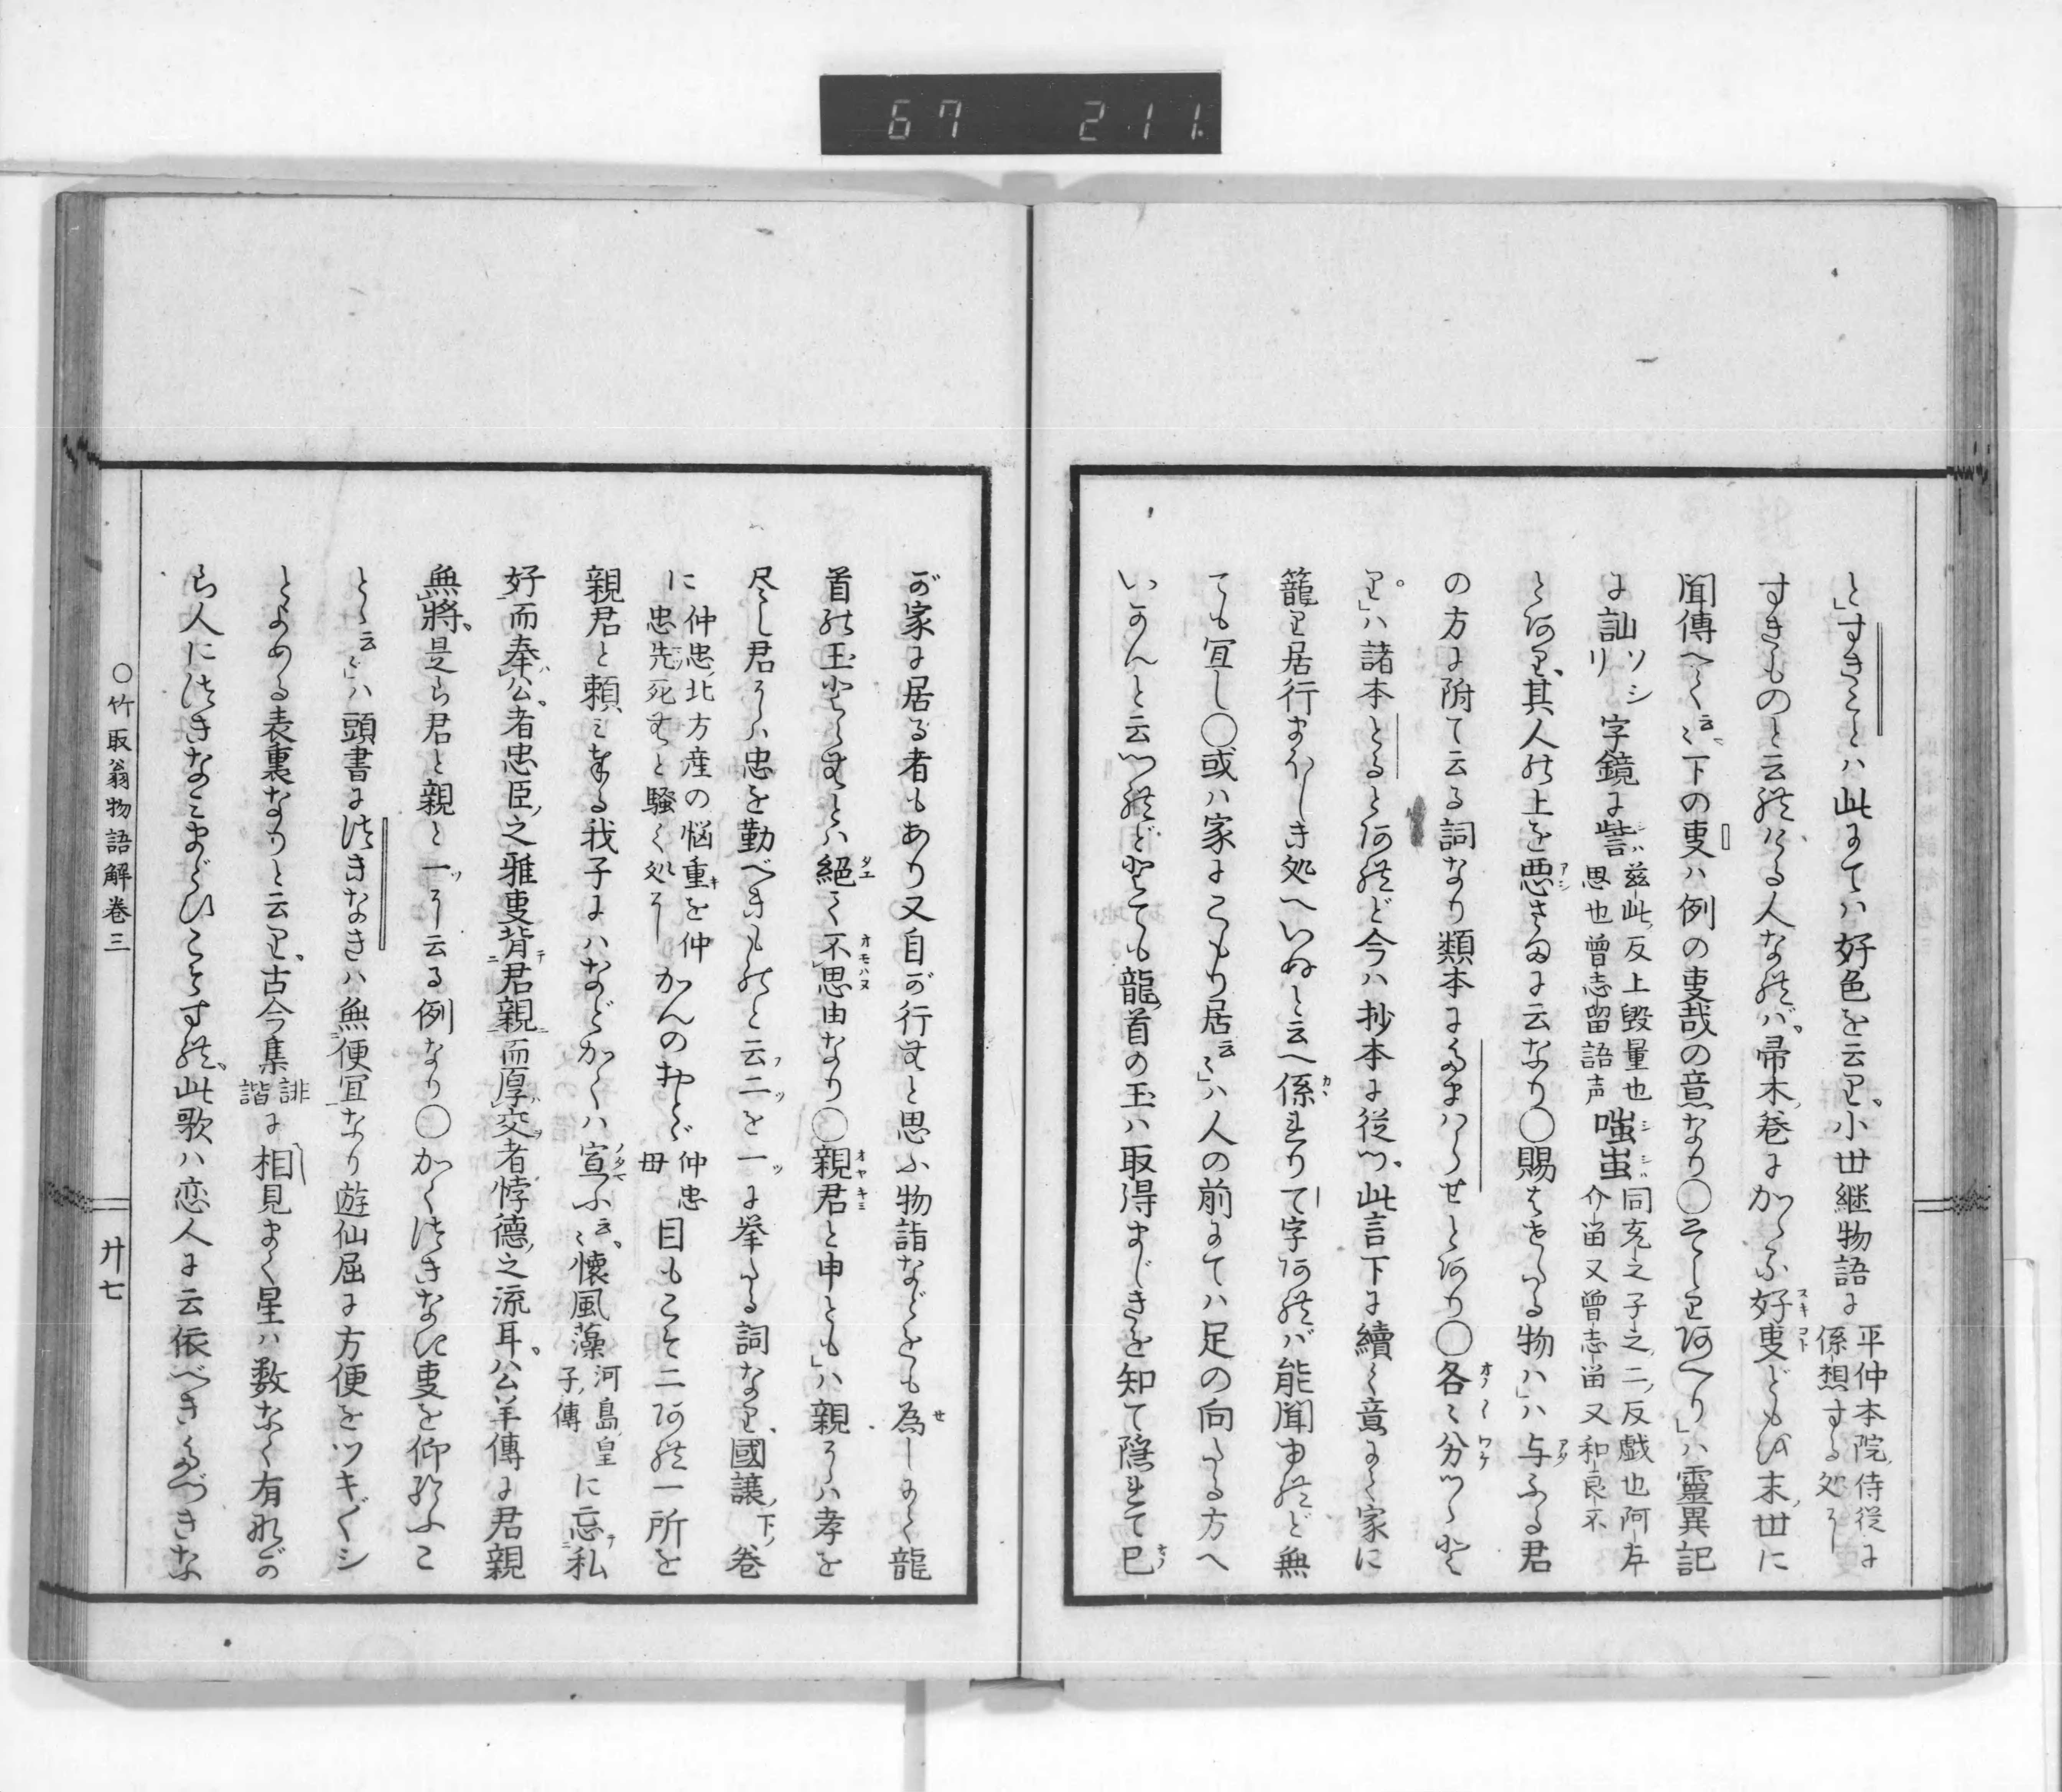 67 211.
と」すきことハ此にてハ好色を云り。小世継物語に平仲本院ノ侍従に係想する処に
すきものと云れける人なれバ。帚木ノ巻にかゝる好事どもを末ノ世に
聞傳へて云々。下の事ハ例の事哉の意なり〇そしりあへり」ハ靈異記
に訕ソシリ字鏡に呰茲此ノ反上毀量也思也曾志留語声嗤蚩同充之子之ノ二ノ反戯也阿左介留又曾志留又和良不
とあり、其人の上を悪さまに云なり〇賜はせたる物ハ」ハ与ふる君
の方に附て云る詞なり類本にたまはらせとあり〇各々分つゝと
り」ハ諸本とるとあれど今ハ抄本に従つ。此言下に續く意にて家に
籠り居行まほしき処へいぬと云へ係れりて字あれバ能聞ゆれど無
ても宜し〇或ハ家にこもり居云々」ハ人の前にてハ足の向たる方へ
いなんと云つれどとても龍ノ首の玉ハ取得まじきを知て隠れて己
が家に居る者もあり又自が行むと思ふ物詣などをも為しにて龍
首の玉とらむとハ絶て不思由なり〇親君と申とも」ハ親にハ孝を
尽し君にハ忠を勤べきものと云二を一に挙たる詞なり、國譲ノ下ノ巻
に仲忠ノ北方産の悩重きを仲忠先死むと騒く処にかんのおとゞ仲忠母目もこそ二あれ一所を
親君と頼ミ奉る我子にハなどかくハ宣ふ云々。懐風藻河島ノ皇子ノ傳に忘私
好而奉公。者忠臣ノ之雅事背君親而厚交者悖徳ノ之流耳。公羊傳に君親
無將。是ら君と親と一に云る例なり〇かくつきなき事を仰給ふこ
とゝ云々」ハ頭書につきなきハ無便宜なり遊仙屈に方便をツキ〴〵シ
とよめる表裏なりと云り。古今集誹諧に相見まく星ハ数なく有なが
ら人につきなミまどひこそすれ。此歌ハ恋人に云依べきたづきな
〇竹取翁物語解巻三
廿七